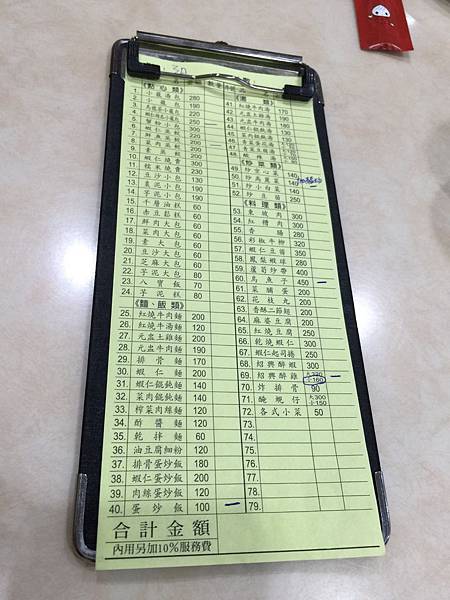 《點心類》
1. 小籠湯包 280
2. 小籠包 190
3.
4.
5. 蟹粉小包
6. 蝦仁蒸餃
7. 鮮蝦蒸餃
8. 菜肉蒸餃
9. 素蒸餃 200
10. 蝦仁燒賣 230
11. 糯米燒賣 160
12. 豆沙小包 130
13. 棗泥小包 190
14. 芋泥小包 190
15. 千層油糕 60
16. 赤豆鬆糕 60
17. 鮮肉大包 60
18. 菜肉大包 60
19. 素大包 60
20. 豆沙大包 60
21. 芝麻大包 60
22. 芋泥大包 80
23. 八寶飯 70
24. 芋泥糕 80
《麵、飯類》
25. 紅燒牛肉麵 200
26. 紅燒牛湯麵 120
27. 元盅土雞麵 200
28. 元盅牛肉麵 190
29. 排骨麵 170
30. 蝦仁麵 200
31. 蝦仁餛飩麵 140
32. 菜肉餛飩麵 140
33. 榨菜肉絲麵 120
34. 酢醬麵 120
35. 乾拌麵 60
36. 油豆腐細粉 120
37. 排骨蛋炒飯 180
38. 蝦仁蛋炒飯 200
39. 肉絲蛋炒飯 120
40. 蛋炒飯 100
合計金額
內用另加10%服務費
《湯類》
41. 紅燒牛肉湯 170
42. 元盅土雞湯
43. 元盅牛肉湯
44. 蝦仁餛飩湯
45. 菜肉餛飩湯
46.
47.
48. 酸辣湯
《炒菜類》
49. 炒空心菜 140
50. 炒高麗菜 140
51. 炒小白菜 140
52. 炒豆苗 250
《料理類》
53. 東坡肉 300
54. 紅糟肉 300
55. 香腸 280
56. 彩椒牛柳 320
57. 蝦仁豆苗 350
58. 鳳梨蝦球 280
59. 蘆筍炒帶 400
60. 烏魚子 450
61. 菜脯蛋 200
62. 花枝丸 200
63. 香酥二節翅 200
64. 麻婆豆腐 200
65. 紅燒豆腐 250
66. 乾燒蝦仁 300
67. 蝦仁起司捲 250
68. 紹興醉蝦 300
69. 紹興醉雞 大320 小160
70. 炸排骨 90
71. 醃蜆仔 大300 小150
72. 各式小菜 50
73.
74.
75.
76.
77.
78.
79.